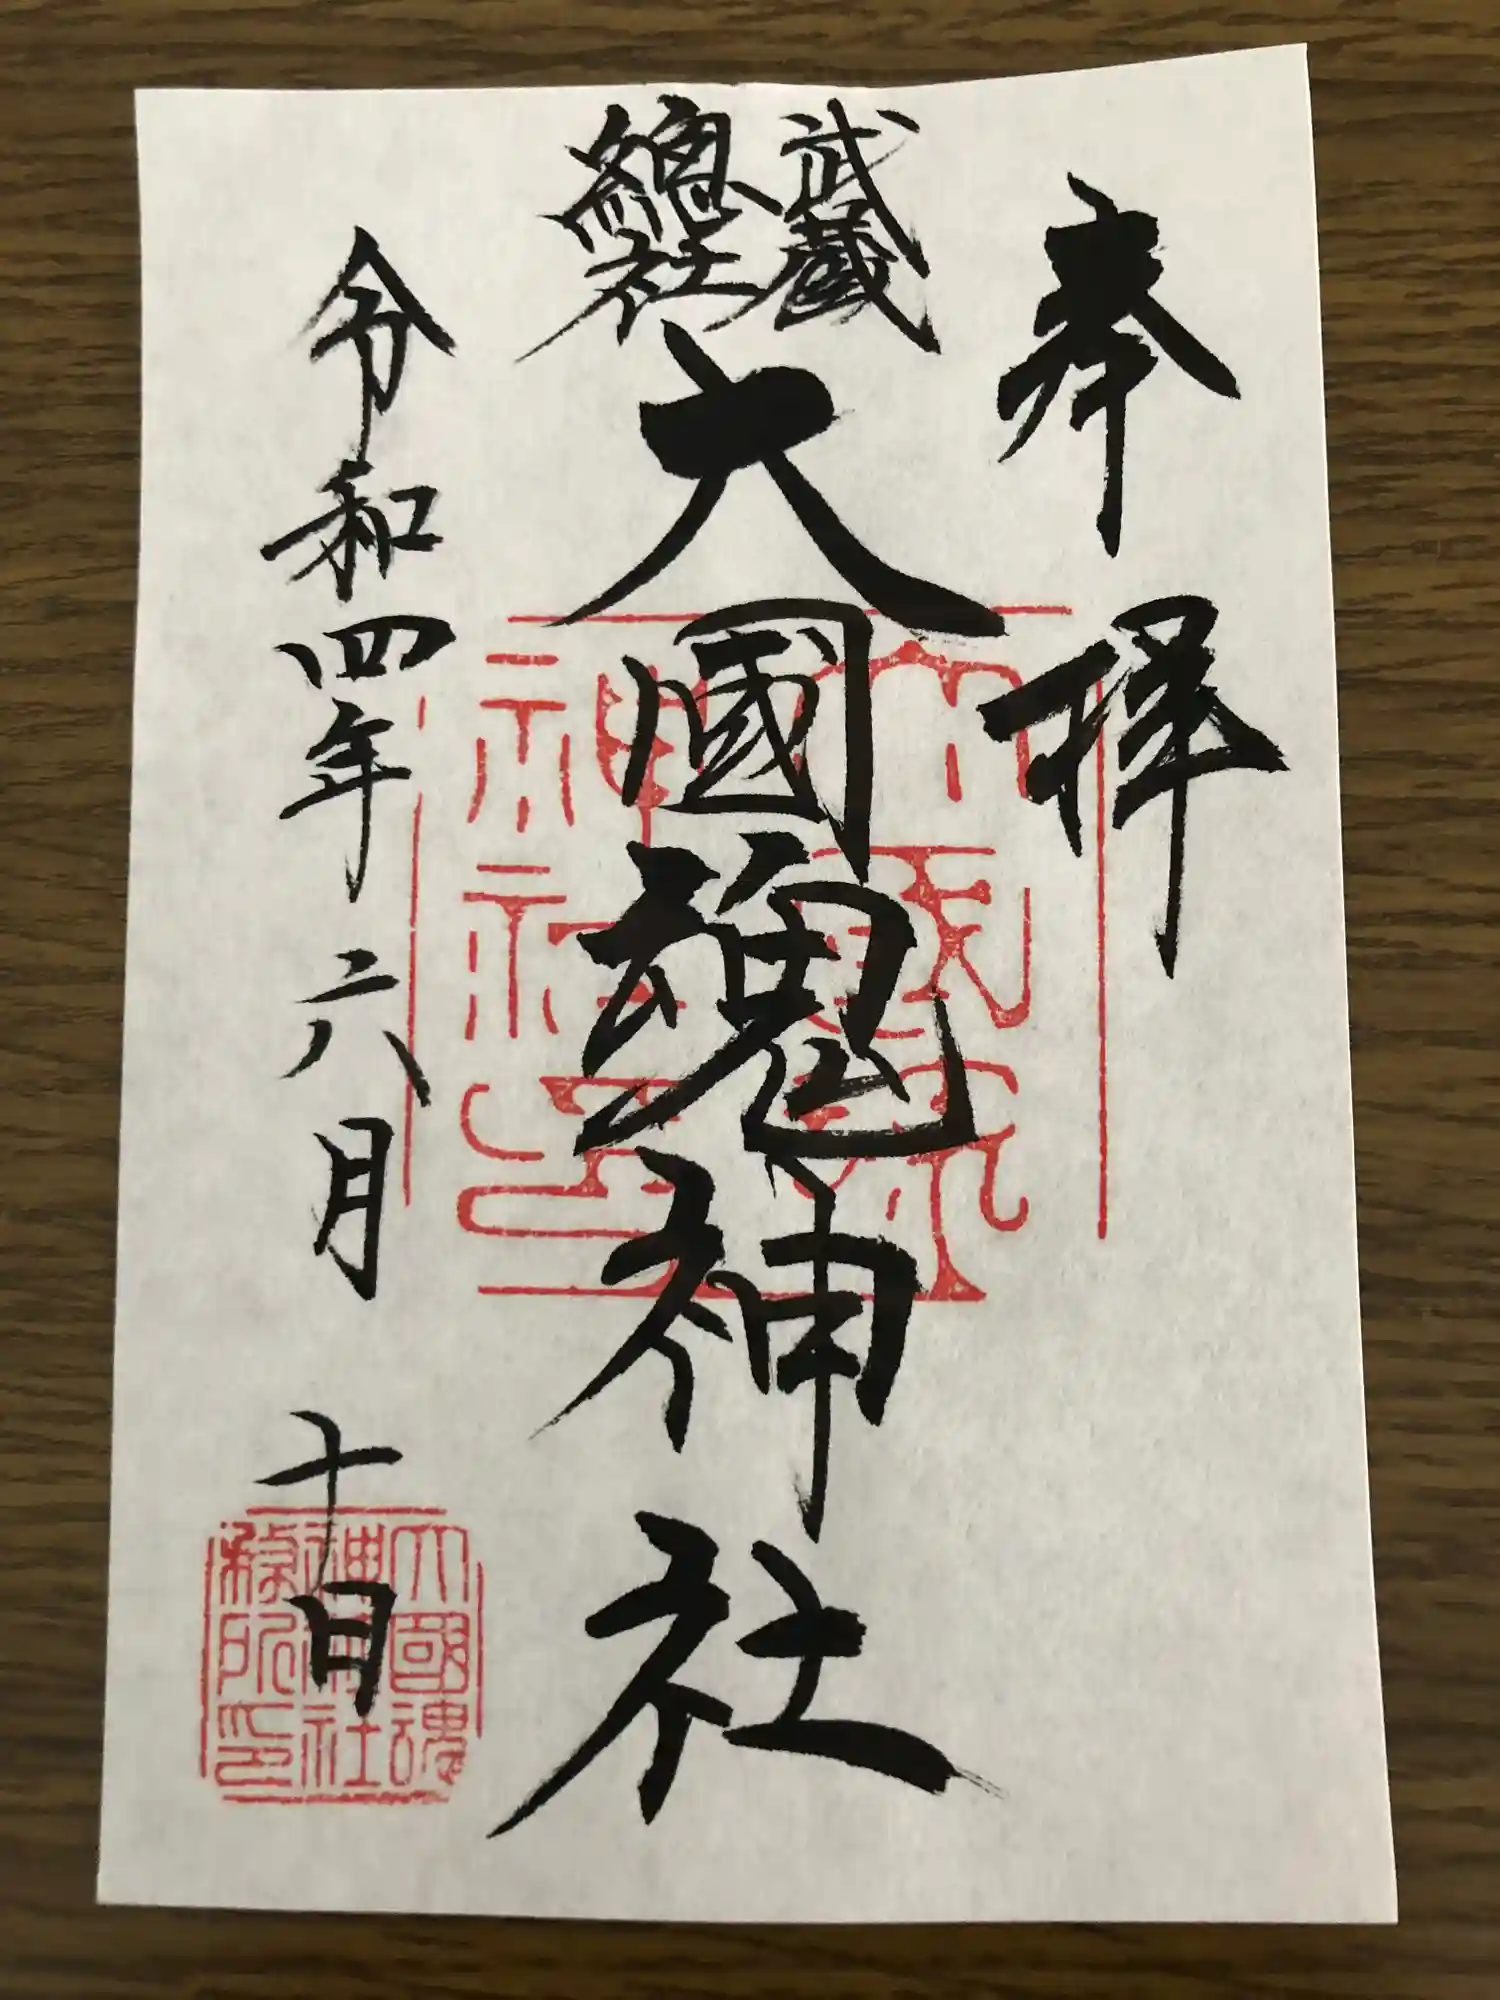 奉拝
武蔵
總社
大國魂神社
令和四年六月十日
大國魂
神社
大國魂
神社
印